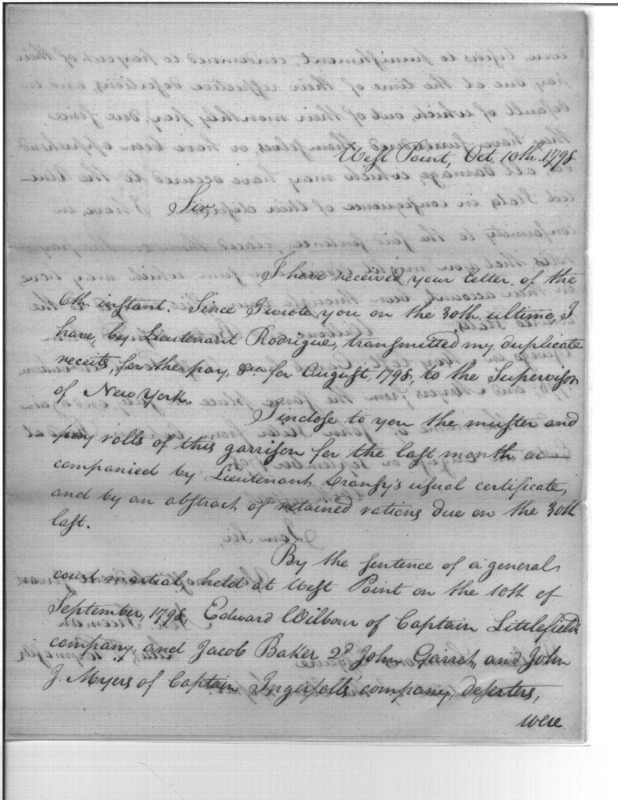 West Point, Oct. 10th. 1798
Sir,
I have received your letter of the
6th. instant. Since I wrote you on the 30th. ultimo, I
have, by Lieutenant Rodrigue, transmitted my duplicate
receits, for the pay, &ca for August, 1798, to the Supervisor
of New York.
I inclose to you the muster and
pay rolls of this garrison for the last month, ac
companied by Lieutenant usual certificate,
and by an abstract of retained rations due on the 30th
last.
By the sentence of a general
court martial, held at West Point on the 10th of
September, 1798, Edward Wilbour of Captain Littlefield's
company, and Jacob Baker 2d John Garret, and John
J. Myers of Captain Ingersoll's company, deserters,
were